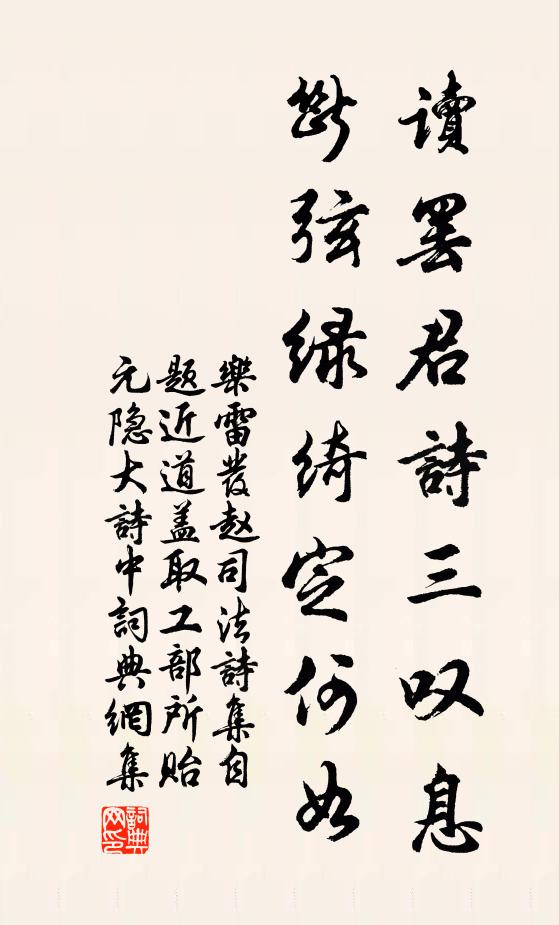 讀罷君詩三叹息
斷弦绿綺定何如
樂雷發赵司法詩集自
题近道盖取工部所貽
元隐大詩中詞典網集
詞典网印